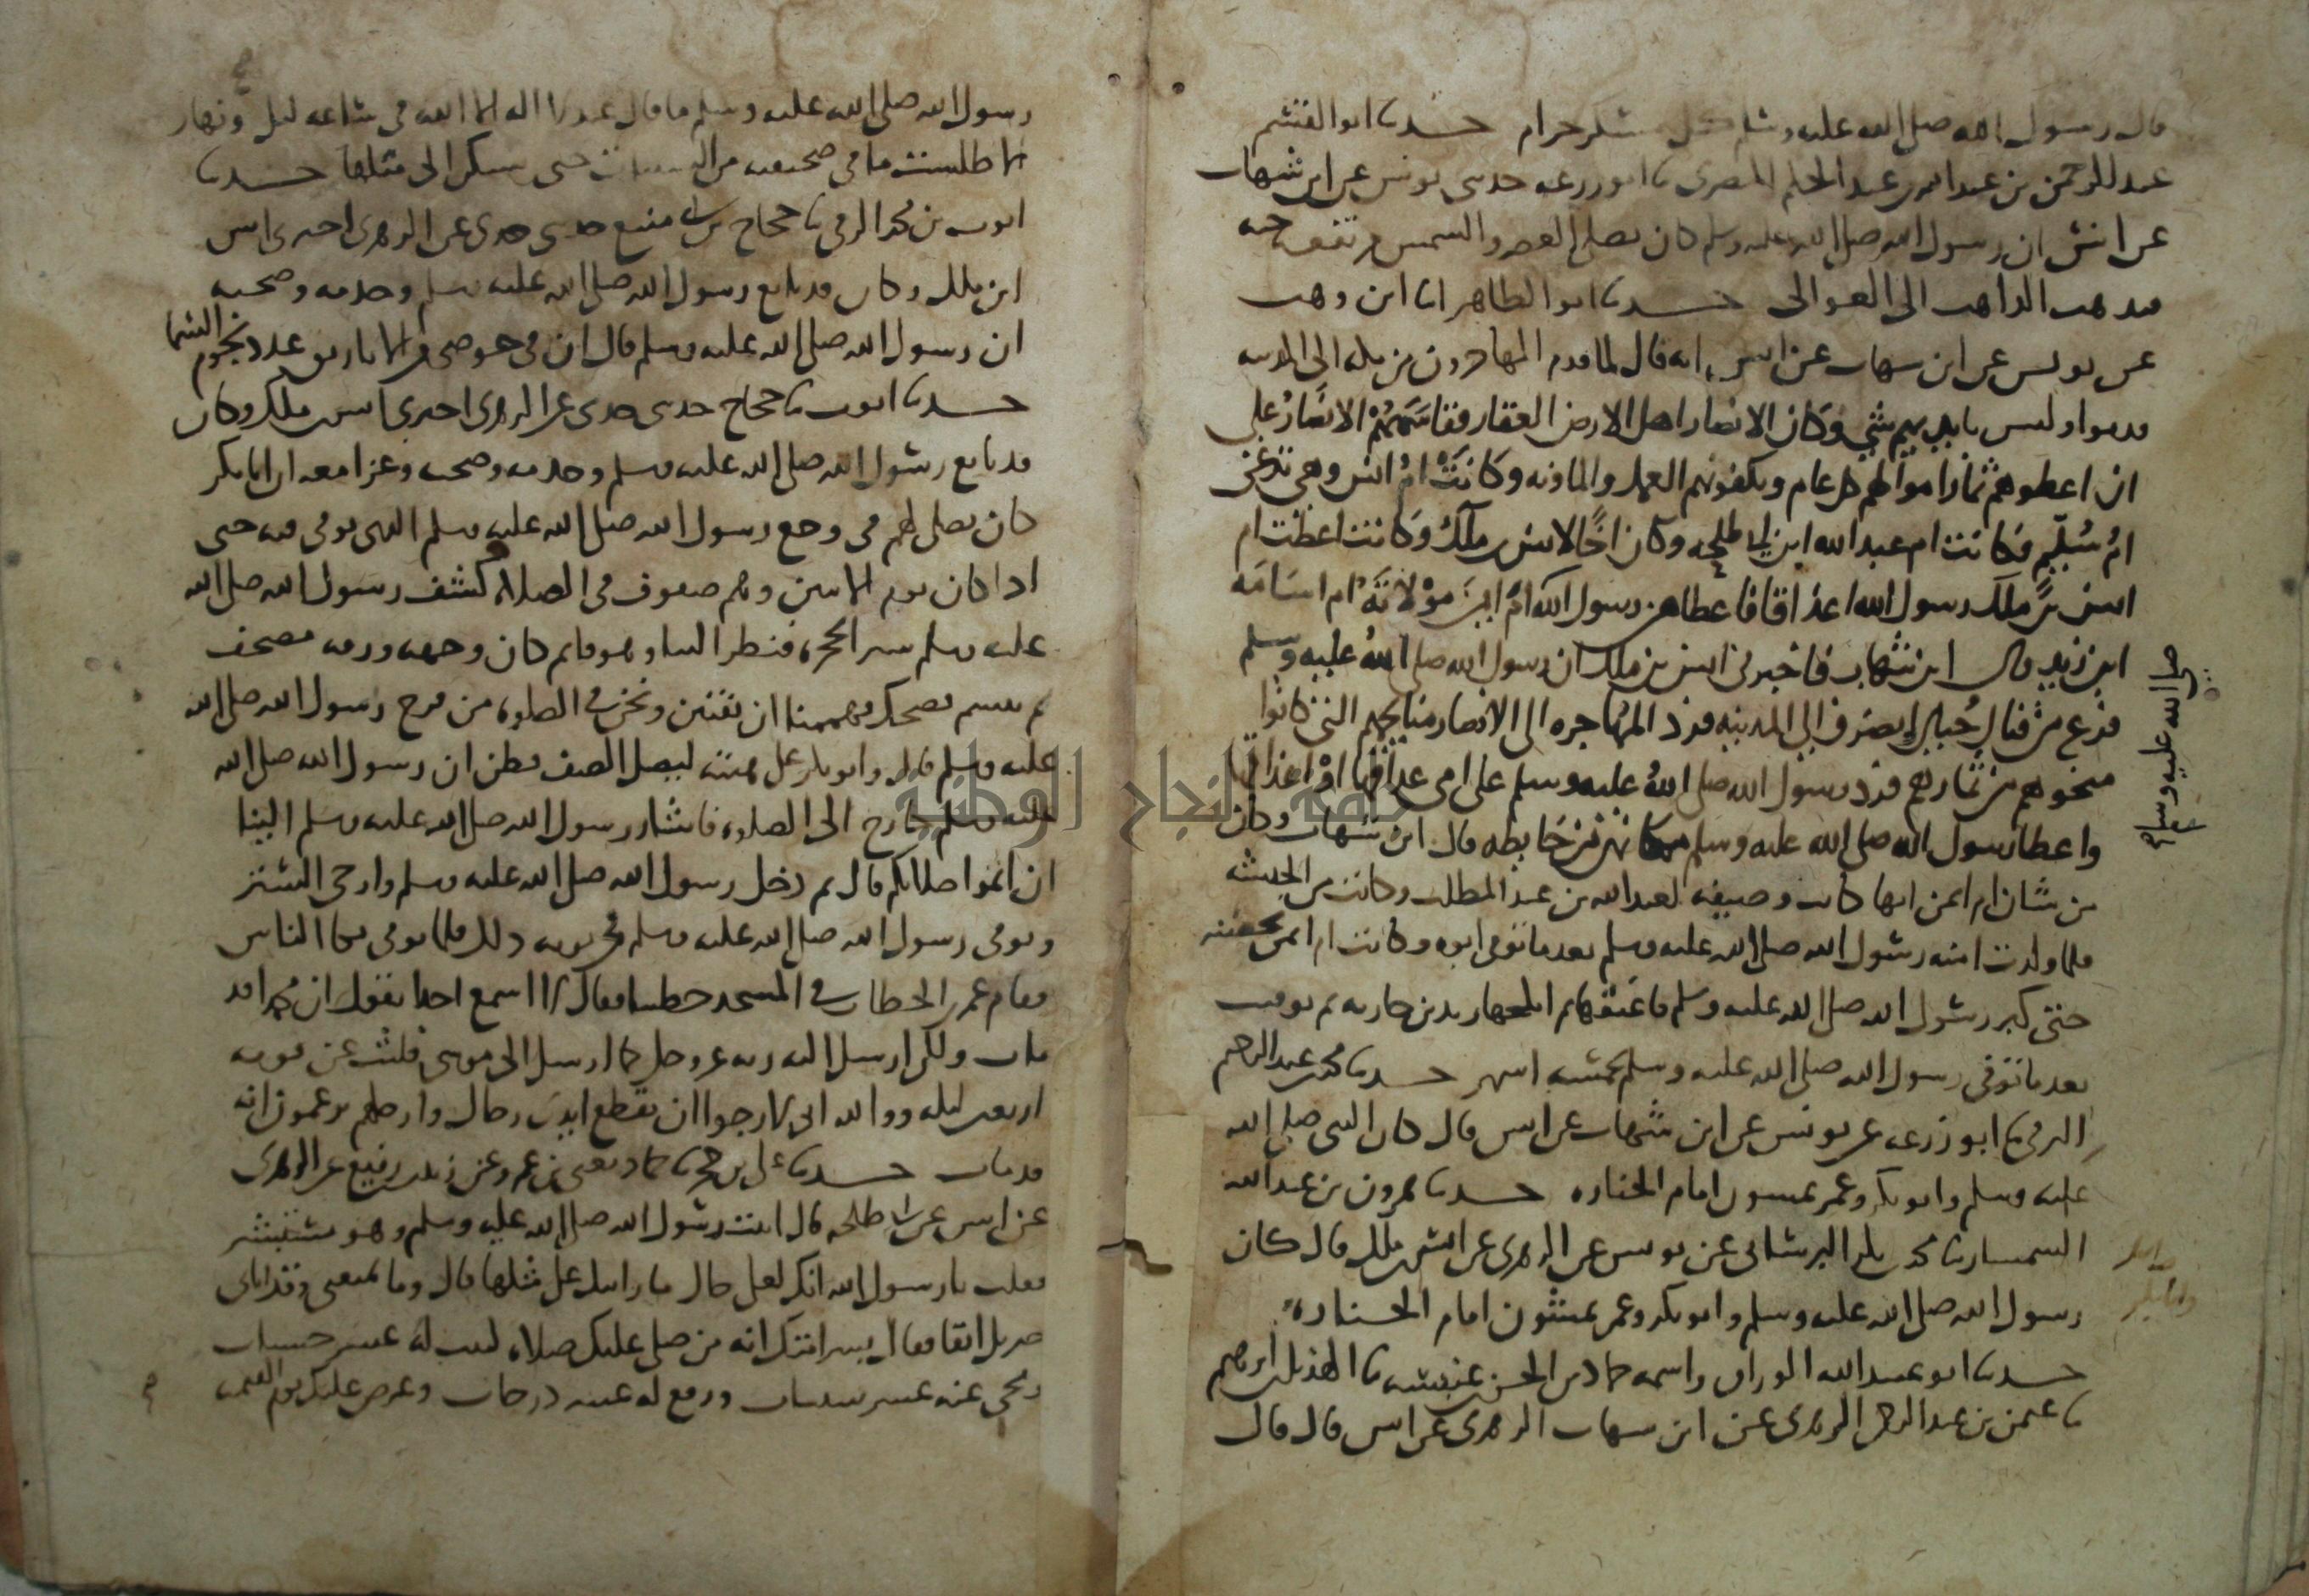 قال رسول الله صلى الله عليه وسلم كل مسكر حرام حدثنا ابو القسم
عبد الرحمن بن عبد الله بن عبد الحكم المصرى نا ابو زرعه حدثنى يونس عن ابن شهاب
عن انس ان رسول الله صلى الله عليه وسلم كان يصلى العصر والشمس مرتفعه حيه
فيذهب الذاهب الى العوالى حدثنا ابو الطاهر انا ابن وهب
عن يونس عن ابن شهاب عن انس انه قال لما قدم المهاجرون من مكه الى المدينه
قدموا وليس بايديهم شي وكان الانصار اهل الارض العقار فقاسمهم الانصار على
ان اعطوهم ثمار اموالهم كل عام ويكفونهم العمل والماونه وكانت ام انس وهي تدعى
ام سليم فكانت ام عبد الله ابن ابى طلحه وكان اخا لانس بن ملك وكانت اعطت ام
انس بن ملك رسول الله اعذاقا فاعطاهن رسول الله ام ايمن مولاته ام اسامه
صلى الله عليه وسلم
ابن زيد قال ابن شهاب فاخبرنى انس بن ملك ان رسول الله صلى الله عليه وسلم
فرع من قتال انصرف الى المدينه فرد المهاجره الى الانصار منايحهم التى كانوا
منحوهم من ثمارهم فرد رسول الله صلى الله عليه وسلم على امى عذاقها او اعذاقها
واعطا رسول الله صلى الله عليه وسلم مكانهن من حايطه قال ابن شهاب وكان
من شان ام ايمن انها كانت وصيفه لعبد الله بن عبد المطلب وكانت من الحبشه
فلما ولدت امنه رسول الله صلى الله عليه وسلم بعد ما توفى ابوه وكانت ام ايمن تحضنه
حتى كبر رسول الله صلى الله عليه وسلم فاعتقها ثم انكحها زيد بن حارثه ثم توفيت
بعد ما توفى رسول الله صلى الله عليه وسلم بخمسه اشهر حدثنا محمد بن عبد الرحيم
البرقى نا ابو زرعه عن يونس عن ابن شهاب عن انس قال كان النبى صلى الله
عليه وسلم وابو بكر وعمر يمشون امام الجنازه حدثنا هرون بن عبد الله
السمسار نا محمد بن بكر البرسانى عن يونس عن الزهرى عن انس بن ملك قال كان
رسول الله صلى الله عليه وسلم وابو بكر وعمر يمشون امام الجنازه
حدثنا ابو عبد الله الوراق واسمه حماد بن الحسن بن عنبسه نا الهذيل بن ابرهيم
نا عثمن بن عبد الرحمن الزهرى عن ابن شهاب الزهرى عن انس قال قال
رسول الله صلى الله عليه وسلم ما قال عبد لا اله الا الله فى ساعه ليل ونهار
الا طلست ما فى صحيفته من السيئات حتى يسكن الى مثلها حدثنا
ايوب بن محمد الرقى نا حجاج بن ابى منيع حدثنى جدى عن الزهرى اخبرنى انس
ابن ملك وكان قد بايع رسول الله صلى الله عليه وسلم وخدمه وصحبه
ان رسول الله صلى الله عليه وسلم قال ان فى حوضى من الاباريق عدد نجوم السما
حدثنا ايوب نا حجاج حدثنى جدى عن الزهرى اخبرنى انس بن ملك وكان
قد بايع رسول الله صلى الله عليه وسلم وخدمه وصحبه وغزا معه ان ابا بكر
كان يصلى لهم فى وجع رسول الله صلى الله عليه وسلم الذى توفى فيه حتى
اذا كان يوم الاثنين وهم صفوف فى الصلاه كشف رسول الله صلى الله
عليه وسلم ستر الحجره فنظر الينا وهو قايم كان وجهه ورقه مصحف
ثم تبسم فضحك فهممنا ان نفتتن ونحن فى الصلوه من فرح رسول الله صلى الله
عليه وسلم قال وابو بكر على ليصل الصف وظن ان رسول الله صلى الله
عليه وسلم خارج الى الصلوه فاشار رسول الله صلى الله عليه وسلم الينا
ان اتموا صلاتكم قال ثم دخل رسول الله صلى الله عليه وسلم وارخى الستر
وتوفى رسول الله صلى الله عليه وسلم فى يومه ذلك فلما توفى بكا الناس
فقام عمر بن الخطاب فى المسجد خطيبا فقال لا اسمع احدا يقول ان محمدا قد
مات ولكن ارسل اليه ربه عز وجل كما ارسل الى موسى فلبث عن قومه
اربعين ليله ووالله انى لارجوا ان يقطع ايدى رجال وارجلهم يزعمون انه
قد مات حدثنا على بن حجر نا حماد يعنى بن عمرو عن زيد بن رفيع عن الزهرى
عن انس عن ابى طلحه قال اتيت رسول الله صلى الله عليه وسلم وهو مستبشر
فقلت يا رسول الله انك لعلى حال ما رايتك على مثلها قال وما يمنعنى وقد اتانى
جبريل انفا فقال بشر امتك انه من صلى عليك صلاه كتبت له عشر حسنات
ومحى عنه عشر سيئات ورفع له عشر درجات وعرض عليك يوم القيمه
جامعة النجاح الوطنية